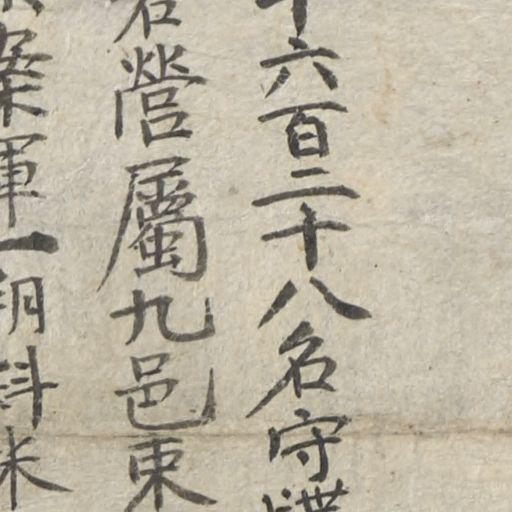 六百二十八名守
營屬九邑束
案軍一朔料米